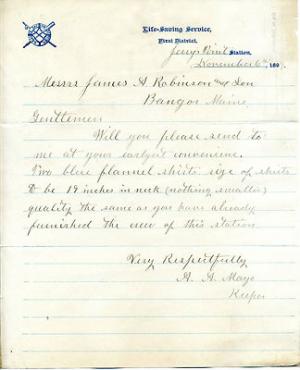 Life-Saving Service,
First District,
Jerry's Point Station,
November 6th, 189
Messrs James A Robinson and Son
Bangor Maine
Gentlemen
Will you please send to
me at your earlyest convenience.
Two blue flannel shirts size of shirts
to be 19 inches in neck (nothing smaller)
quality the same as you have already
furnished the crew of this station
Very Respectfully
A. A. Mayo
Keeper